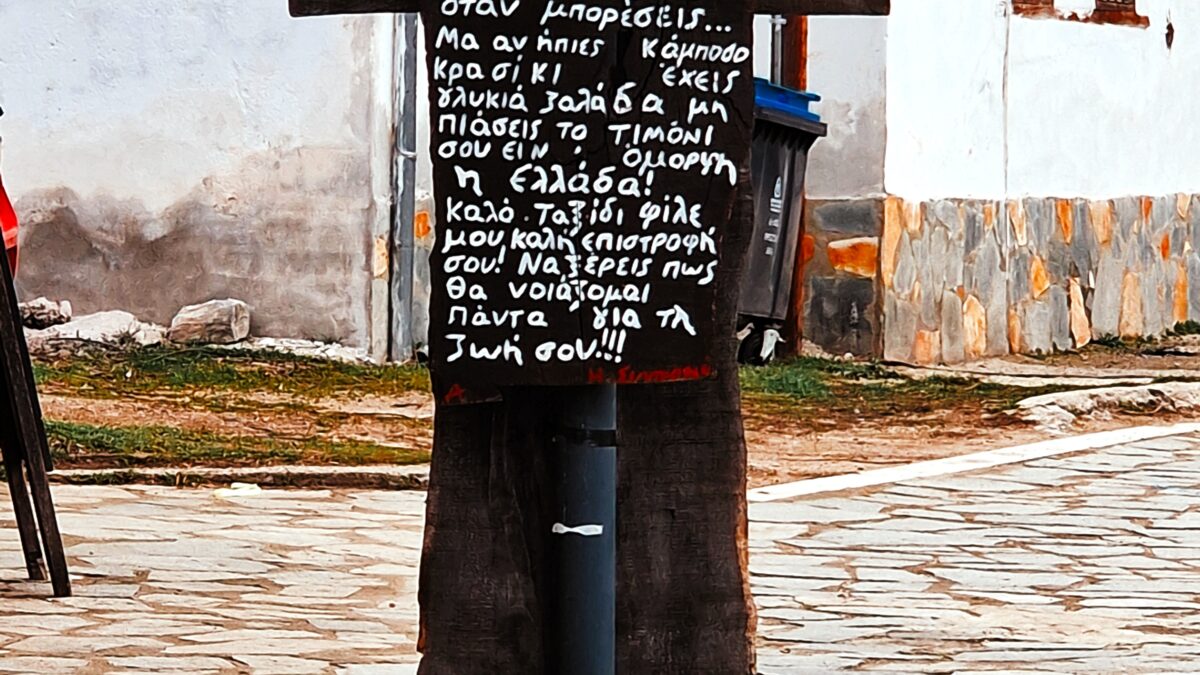 όταν μπορέσεις...
Μα αν ήπιες κάμποσο
κρασί κι έχεις
γλυκιά ζαλάδα μη
πιάσεις το τιμόνι
σου ειν' όμορφη
η Ελλάδα!
Καλό ταξίδι φίλε
μου, καλή επιστροφή
σου! Να ξέρεις πως
θα νοιάζομαι
πάντα για τη
ζωή σου!!!